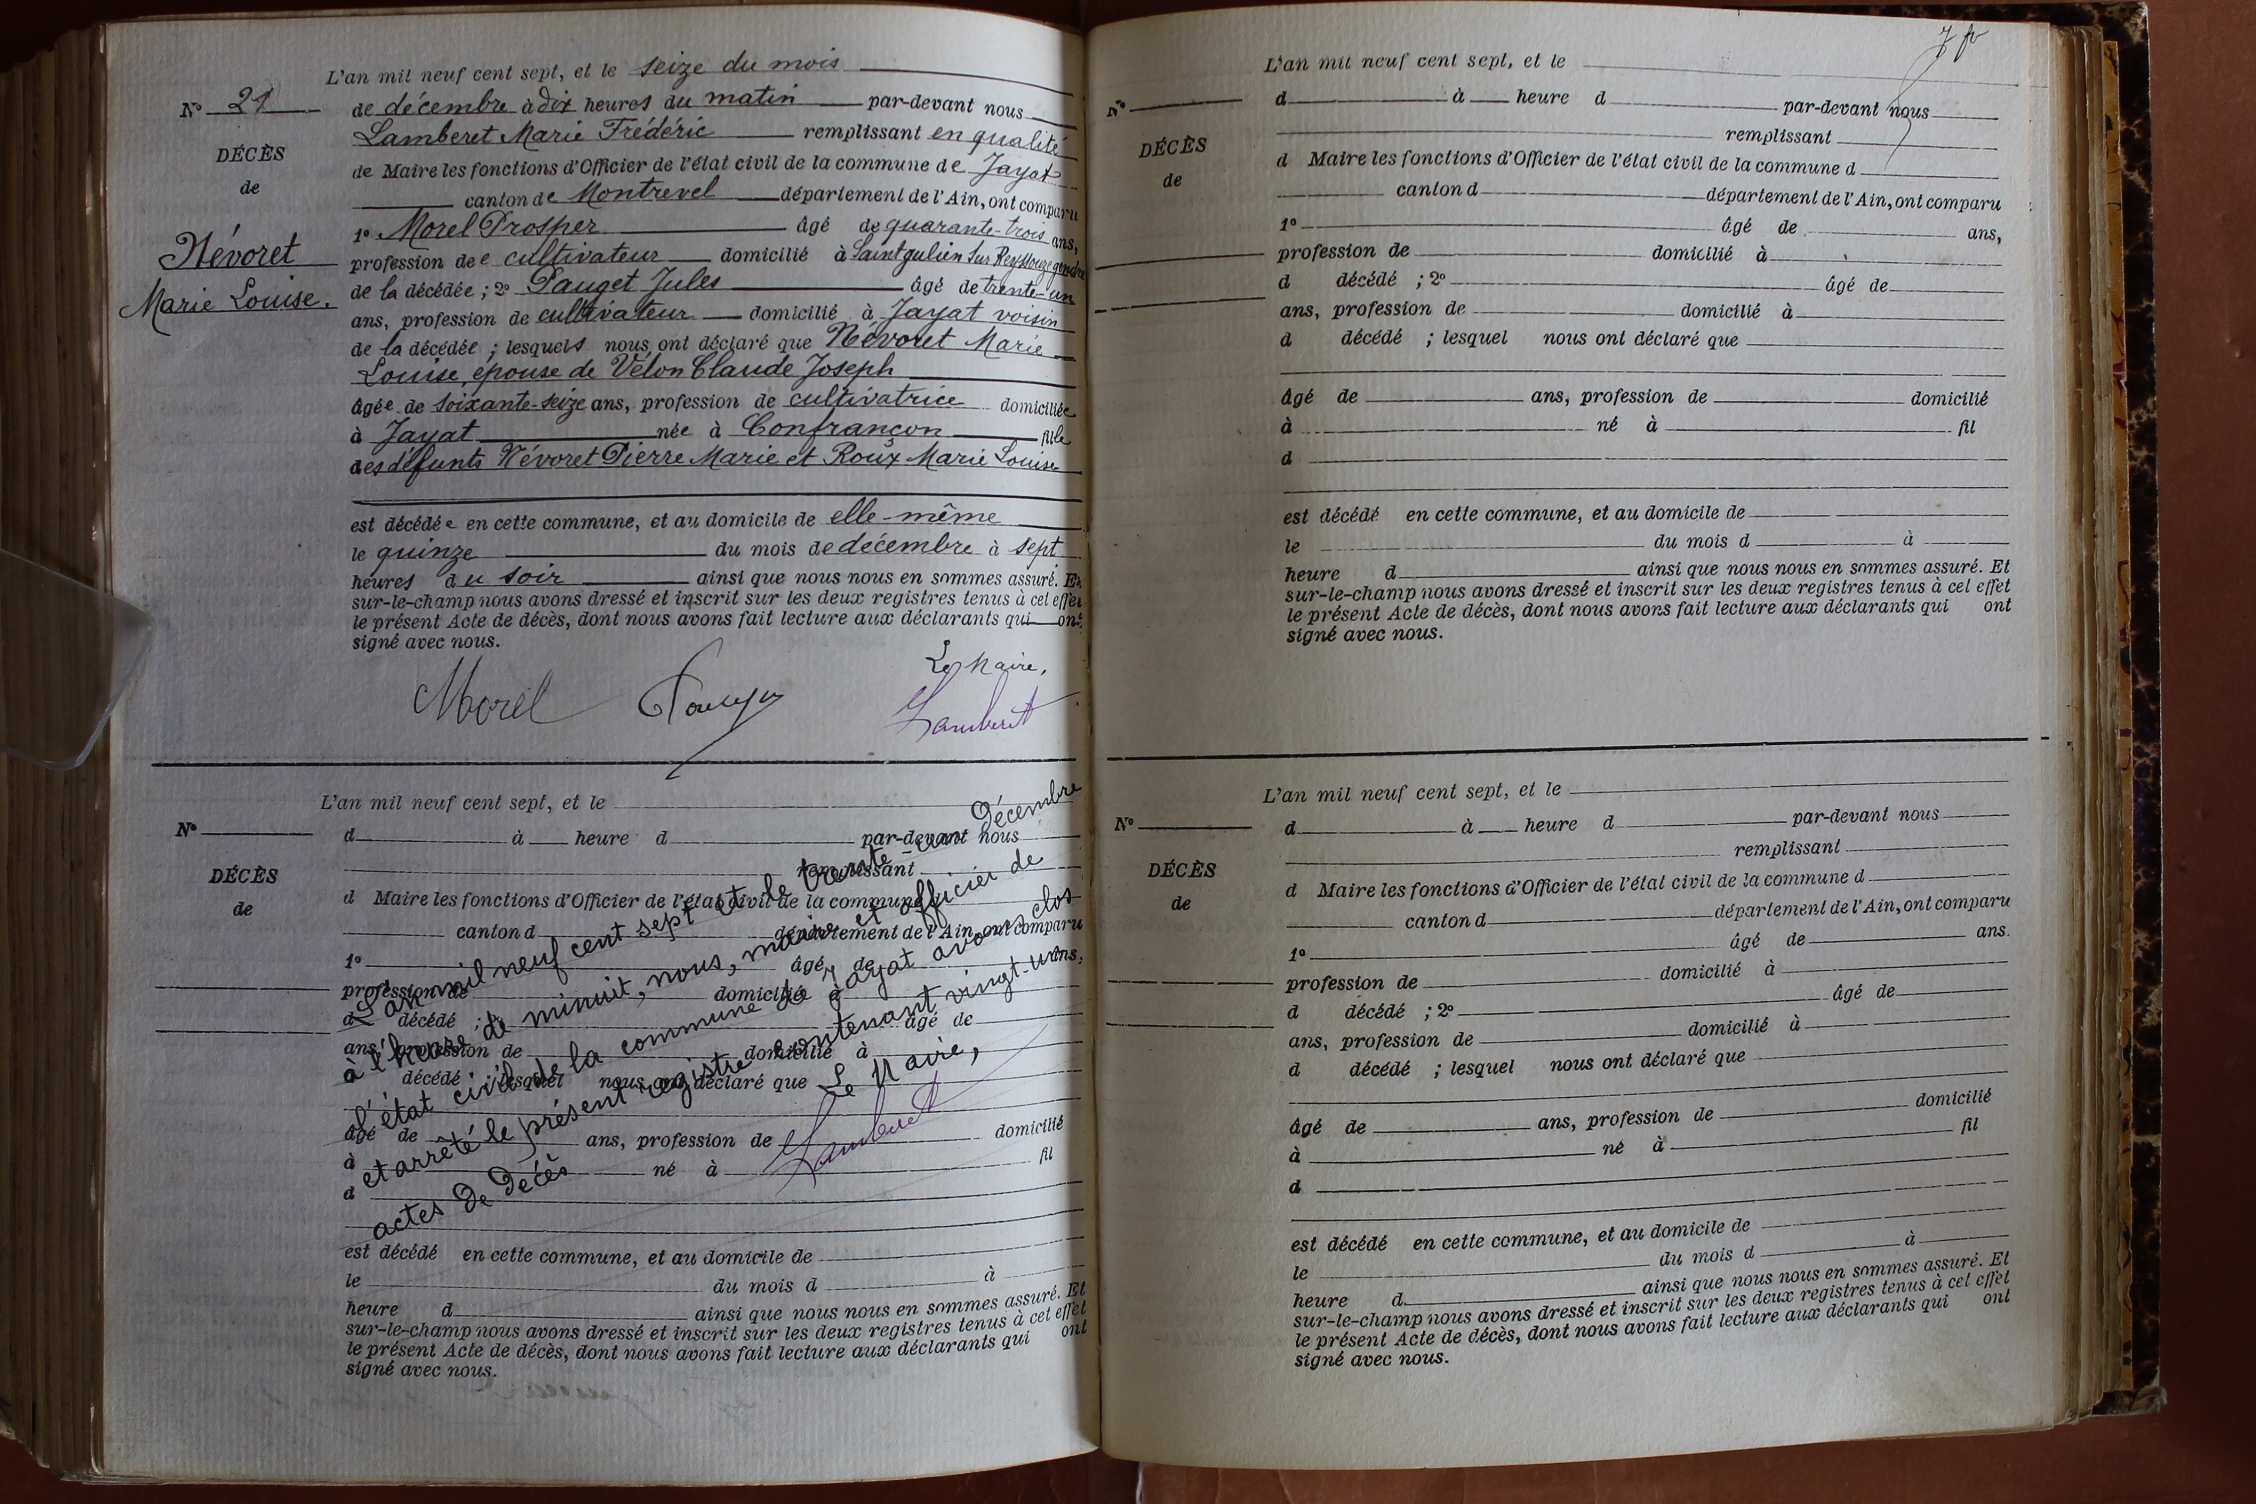 L'an mil neuf cent sept, et le seize du mois
N° 21
de décembre à dix heures du matin par-devant nous
Lamberet Marie Frédéric remplissant en qualité
DÉCÈS
de Maire les fonctions d'Officier de l'état civil de la commune de Jayat
de
canton de Montrevel département de l'Ain, ont comparu
1° Morel Prosper âgé de quarante-trois ans,
Névoret
profession de cultivateur domicilié à Saint Julien sur Reyssouze gendre
Marie Louise.
de la décédée ; 2° Pauget Jules âgé de trente-un
ans, profession de cultivateur domicilié à Jayat voisin
de la décédée ; lesquels nous ont déclaré que Névoret Marie
Louise, épouse de Vélon Claude Joseph
âgée de soixante-seize ans, profession de cultivatrice domiciliée
à Jayat née à Confrançon fille
des défunts Névoret Pierre Marie et Roux Marie Louise
est décédée en cette commune, et au domicile de elle-même
le quinze du mois de décembre à sept
heures du soir ainsi que nous nous en sommes assuré. Et
sur-le-champ nous avons dressé et inscrit sur les deux registres tenus à cet effet
le présent Acte de décès, dont nous avons fait lecture aux déclarants qui ont
signé avec nous.
Le Maire,
Morel Lamberet
L'an mil neuf cent sept, et le
N°
d à heure d par-devant nous
remplissant
DÉCÈS
d Maire les fonctions d'Officier de l'état civil de la commune d
de
canton d département de l'Ain, ont comparu
1° âgé de ans,
profession de domicilié à
d décédé ; 2° âgé de
ans, profession de domicilié à
d décédé ; lesquel nous ont déclaré que
âgé de ans, profession de domicilié
à né à fil
d
est décédé en cette commune, et au domicile de
le du mois d à
heure d ainsi que nous nous en sommes assuré. Et
sur-le-champ nous avons dressé et inscrit sur les deux registres tenus à cet effet
le présent Acte de décès, dont nous avons fait lecture aux déclarants qui ont
signé avec nous.
L'an mil neuf cent sept et le trente-un Décembre
à l'heure de minuit, nous, maire et officier de
l'état civil de la commune de Jayat avons clos
et arrêté le présent registre contenant vingt-un
actes de Décès
Le Maire,
Lamberet
L'an mil neuf cent sept, et le
N°
d à heure d par-devant nous
remplissant
DÉCÈS
d Maire les fonctions d'Officier de l'état civil de la commune d
de
canton d département de l'Ain, ont comparu
1° âgé de ans,
profession de domicilié à
d décédé ; 2° âgé de
ans, profession de domicilié à
d décédé ; lesquel nous ont déclaré que
âgé de ans, profession de domicilié
à né à fil
d
est décédé en cette commune, et au domicile de
le du mois d à
heure d ainsi que nous nous en sommes assuré. Et
sur-le-champ nous avons dressé et inscrit sur les deux registres tenus à cet effet
le présent Acte de décès, dont nous avons fait lecture aux déclarants qui ont
signé avec nous.
L'an mil neuf cent sept, et le
N°
d à heure d par-devant nous
remplissant
DÉCÈS
d Maire les fonctions d'Officier de l'état civil de la commune d
de
canton d département de l'Ain, ont comparu
1° âgé de ans.
profession de domicilié à
d décédé ; 2° âgé de
ans, profession de domicilié à
d décédé ; lesquel nous ont déclaré que
âgé de ans, profession de domicilié
à né à fil
d
est décédé en cette commune, et au domicile de
le du mois d à
heure d ainsi que nous nous en sommes assuré. Et
sur-le-champ nous avons dressé et inscrit sur les deux registres tenus à cet effet
le présent Acte de décès, dont nous avons fait lecture aux déclarants qui ont
signé avec nous.